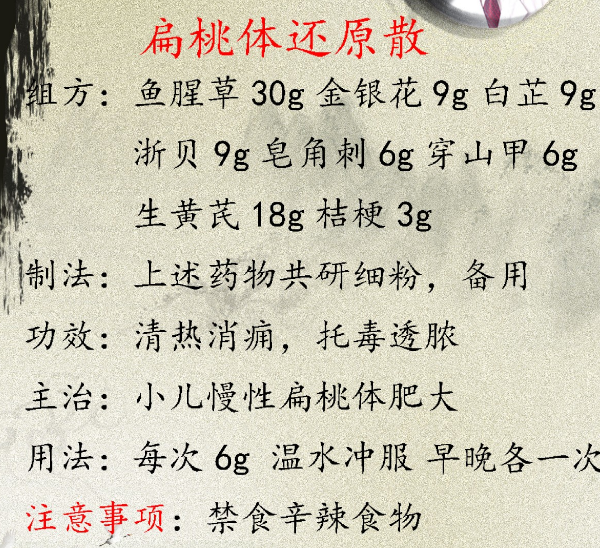 扁桃体还原散
组方：鱼腥草 30g 金银花 9g 白芷 9g
浙贝 9g 皂角刺 6g 穿山甲 6g
生黄芪 18g 桔梗 3g
制法：上述药物共研细粉，备用
功效：清热消痈，托毒透脓
主治：小儿慢性扁桃体肥大
用法：每次 6g 温水冲服 早晚各一次
注意事项：禁食辛辣食物